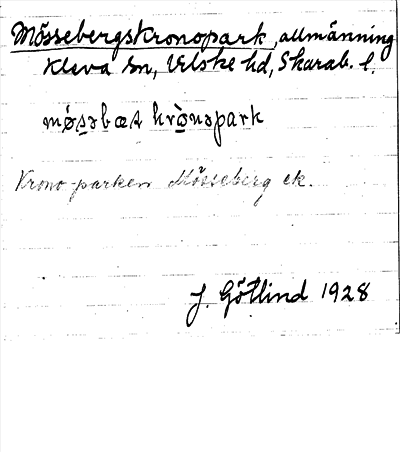 Mössebergskronopark, allmänning
Kleva sn, Vilske hd, Skarab. l.
møsəbæs krònəpark
Krono-parken Mösseberg ek.
J. Götlind 1928